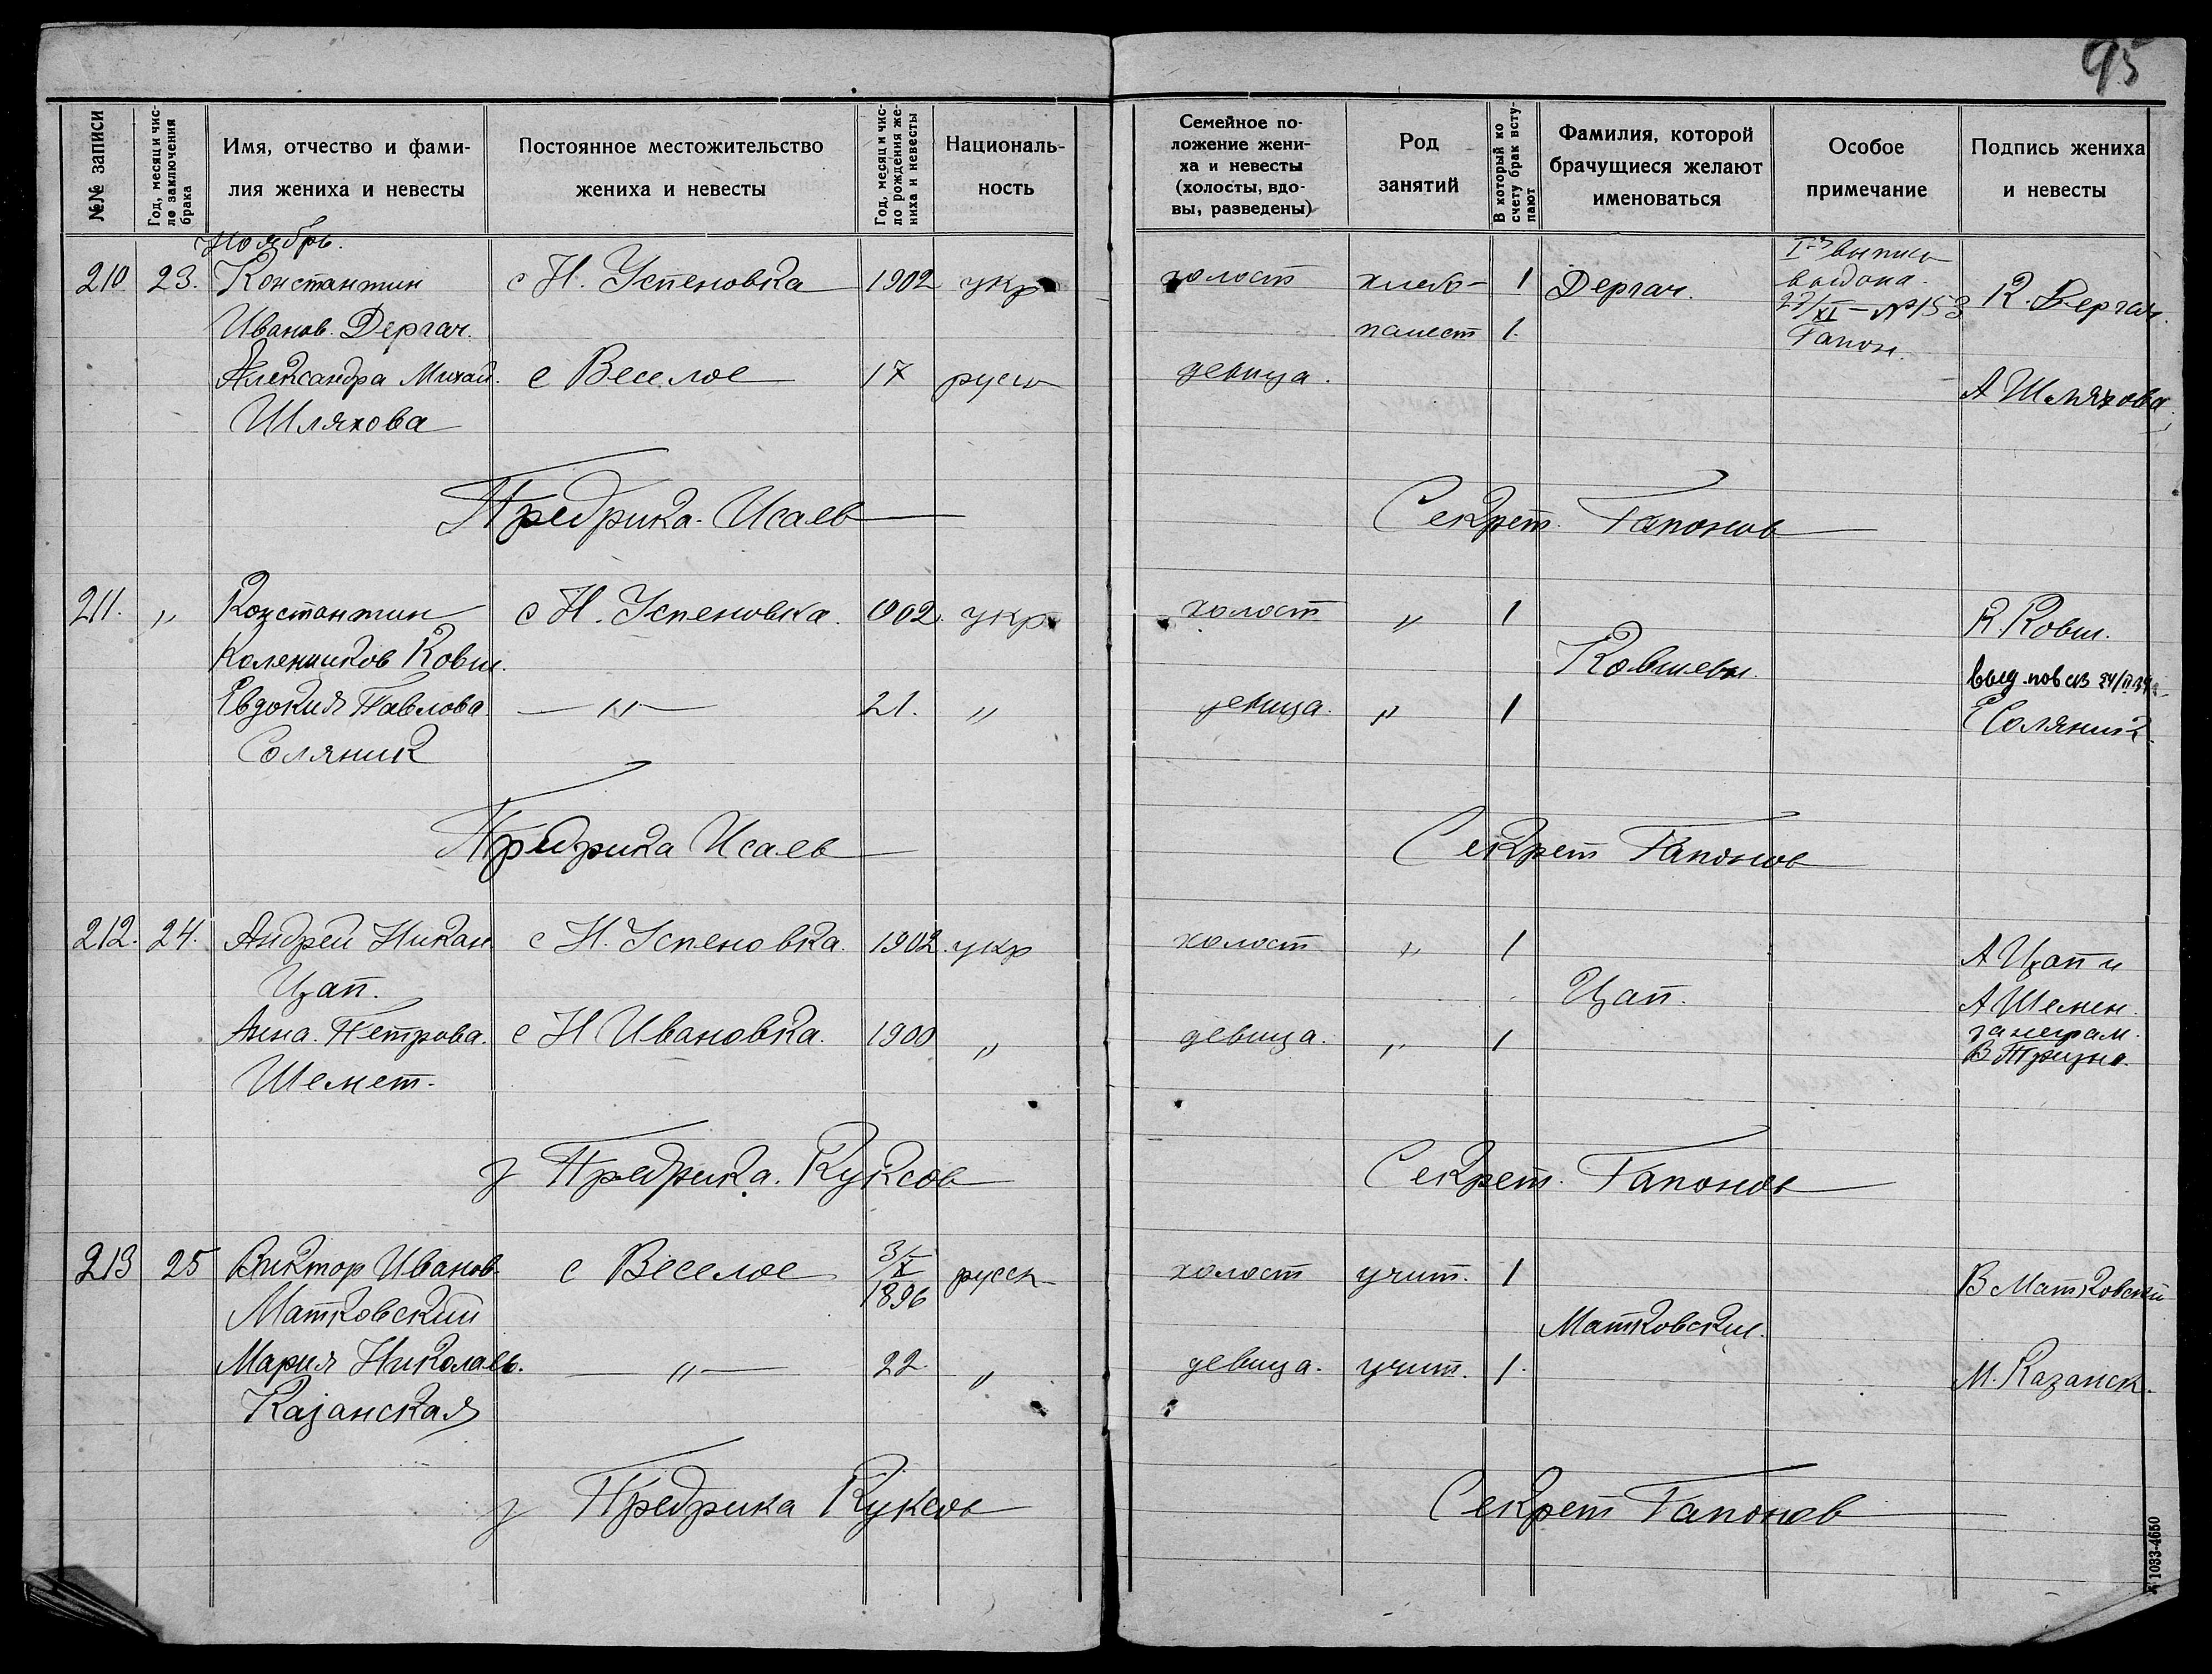 95
№№ записи
Год, месяц и чис-
ло заключения
брака
Имя, отчество и фами-
лия жениха и невесты
Постоянное местожительство
жениха и невесты
Год, месяц и чис-
ло рождения же-
ниха и невесты
Националь-
ность
Семейное по-
ложение жени-
ха и невесты
(холосты, вдо-
вы, разведены)
Род
занятий
В который ко
счету брак всту-
пают
Фамилия, которой
брачущиеся желают
именоваться
Особое
примечание
Подпись жениха
и невесты
Ноябрь.
210 23. Константин с Н. Успеновка 1902 укр холост хлебо- 1 Дергач. К. Дергач.
I-я выпись
выдана
27/XI – №153
Гапон.
Иванов. Дергач. пашест 1.
Александра Михай. с Веселое 17 русск девица. А Шляхова
Шляхова
Предрика. Исаев Секрет. Гапонов
211. „ Константин с Н. Успеновка. 1902 укр холост „ 1 К. Ковш.
Ковш. Ковшевы.
выд. пов св
Евдокия Павлова — „ — 21. „ девица. „ 1 Е Соляник.
Соляник
Предрика Исаев Секрет Гапонов
212. 24. Андрей Никан с Н. Успеновка. 1902. укр холост „ 1 А Цап и
Цап. Цап. А Шемен.
Анна. Петрова. с Н Ивановка. 1900 „ девица. „ 1 за неграм.
Шемет.
з Предрика. Куксов Секрет. Гапонов
213 25 Виктор Иванов. с Веселое 3/X 1896 русск холост учит. 1 В Матковский
Матковский Матковские.
Мария Николаев. — „ — 22. „ девица. учит. 1. М. Казанск.
Казанская
з Предрика Куксов Секрет Гапонов
К 1033-4650